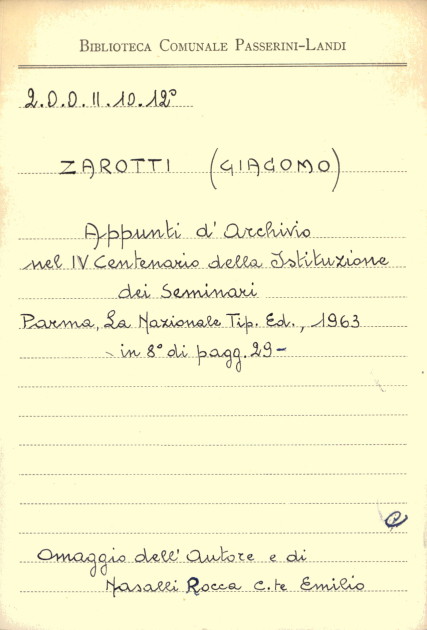 BIBLIOTECA COMUNALE PASSERINI-LANDI
2.O.O.II.10.12°
ZAROTTI (GIACOMO)
Appunti d'Archivio
nel IV Centenario della Istituzione
dei Seminari
Parma, La Nazionale Tip. Ed., 1963
in 8° di pagg. 29-
Omaggio dell'Autore e di
Nasalli Rocca C.te Emilio